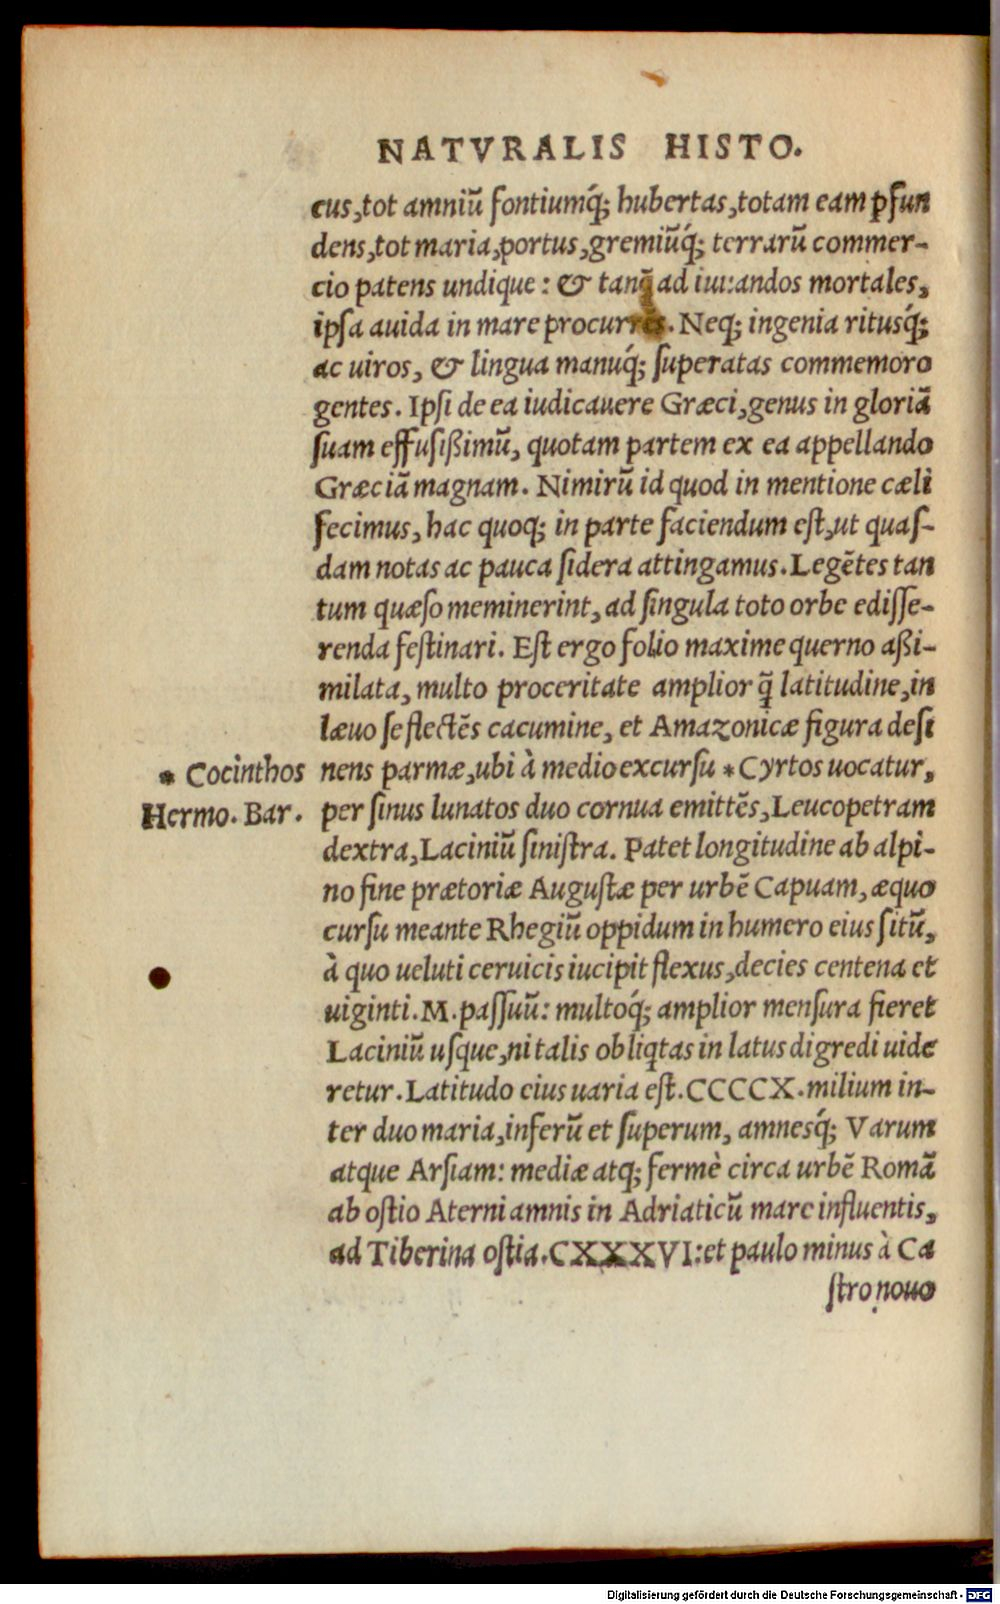 NATVRALIS HISTO.
cus,tot amniū fontiumq́; hubertas,totam eam ꝑfun
dens,tot maria,portus,gremiūq́; terrarū commer-
cio patens undique: & tanq̃ ad iuuandos mortales,
ipsa auida in mare procurrēs. Neq; ingenia ritusq́;
ac uiros, & lingua manuq́; superatas commemoro
gentes. Ipsi de ea iudicauere Græci,genus in gloriā
suam effusißimū, quotam partem ex ea appellando
Græciā magnam. Nimirū id quod in mentione cæli
fecimus, hac quoq; in parte faciendum est,ut quas-
dam notas ac pauca sidera attingamus. Legētes tan
tum quæso meminerint, ad singula toto orbe edisse-
renda festinari. Est ergo folio maxime querno aßi-
milata, multo proceritate amplior q̃ latitudine,in
læuo se flectēs cacumine, et Amazonicæ figura desi
* Cocinthos nens parmæ,ubi à medio excursu * Cyrtos uocatur,
Hermo. Bar. per sinus lunatos duo cornua emittēs,Leucopetram
dextra,Laciniū sinistra. Patet longitudine ab alpi-
no fine prætoriæ Augustæ per urbē Capuam, æquo
cursu meante Rhegiū oppidum in humero eius sitū,
à quo ueluti ceruicis iucipit flexus,decies centena et
uiginti.M.passuū: multoq́; amplior mensura fieret
Laciniū usque,ni talis obliq̃tas in latus digredi uide
retur. Latitudo eius uaria est. CCCCX. milium in-
ter duo maria,inferū et superum, amnesq́; Varum
atque Arsiam: mediæ atq; fermè circa urbē Romā
ab ostio Aterni amnis in Adriaticū mare influentis,
ad Tiberina ostia.CXXXVI:et paulo minus à Ca
stro nouo
Digitalisierung gefördert durch die Deutsche Forschungsgemeinschaft - DFG